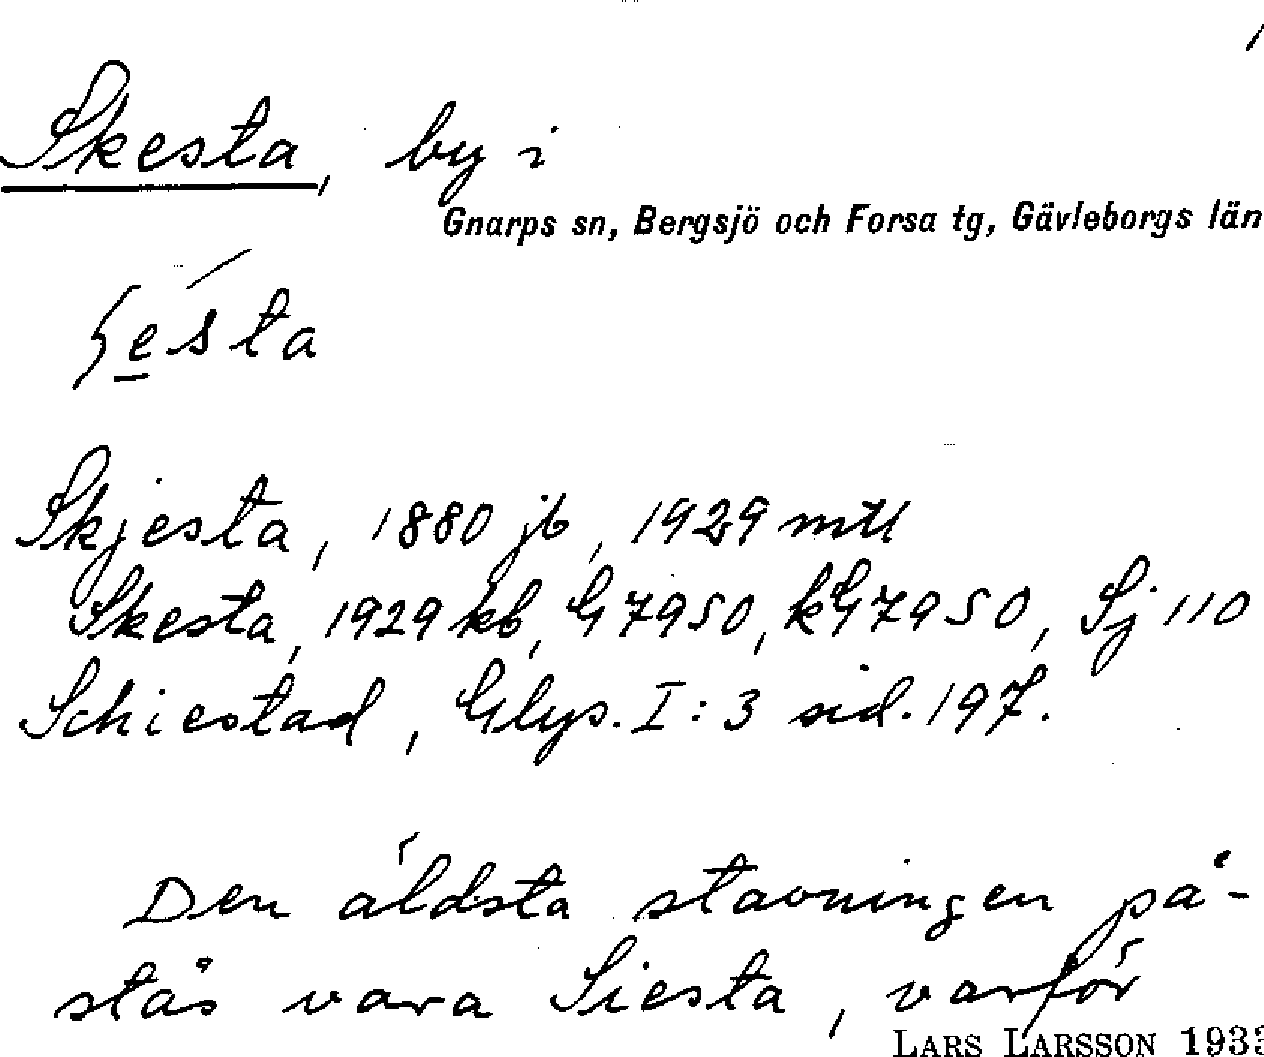 Skesta, by i
Gnarps sn, Bergsjö och Forsa tg, Gävleborgs län
ʃesta
Skjesta, 1880 jb, 1929 mtl
Skesta, 1929 kb, G 7950, kG 7950, Sj 110
Schiestad, Glys. I:3 sid. 197.
Den äldsta stavningen på-
stås vara Siesta, varför
LARS LARSSON 1933